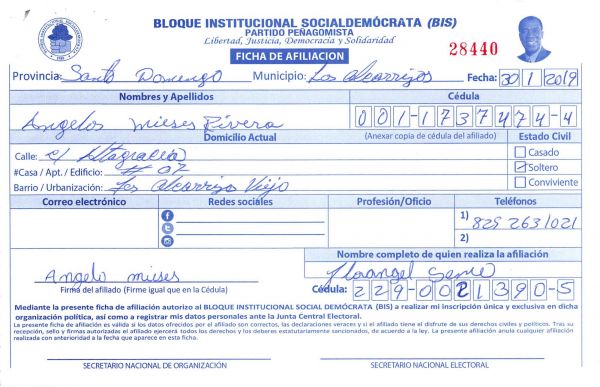 BLOQUE INSTITUCIONAL SOCIALDEMÓCRATA (BIS)
PARTIDO PEÑAGOMISTA
Libertad, Justicia, Democracia y Solidaridad
FICHA DE AFILIACION
28440
Provincia: Santo Domingo Municipio: Los Alcarrizos Fecha: 30/1/2019
Nombres y Apellidos Cédula
Angelos Mieses Rivera 001-1737474-4
Domicilio Actual (Anexar copia de cédula del afiliado) Estado Civil
Calle: c/ Altagracia Casado
#Casa / Apt. / Edificio: # 07 Soltero
Barrio / Urbanización: Los Alcarrizo Viejo Conviviente
Correo electrónico Redes sociales Profesión/Oficio Teléfonos
1) 829 2631021
2)
Nombre completo de quien realiza la afiliación
Angelo mises Florangel
Firma del afiliado (Firme igual que en la Cédula) Cédula: 229-0021390-5
Mediante la presente ficha de afiliación autorizo al BLOQUE INSTITUCIONAL SOCIAL DEMÓCRATA (BIS) a realizar mi inscripción única y exclusiva en dicha
organización política, así como a registrar mis datos personales ante la Junta Central Electoral.
La presente ficha de afiliación es válida si los datos ofrecidos por el afiliado son correctos, las declaraciones veraces y si el afiliado tiene el disfrute de sus derechos civiles y políticos. Tras su
recepción, sello y firmas autorizadas el afiliado ejercerá todos los derechos y los deberes estatutariamente sancionados, de acuerdo a la ley. La presente afiliación anula cualquier afiliación
realizada con anterioridad a la fecha que aparece en esta ficha.
SECRETARIO NACIONAL DE ORGANIZACIÓN SECRETARIO NACIONAL ELECTORAL